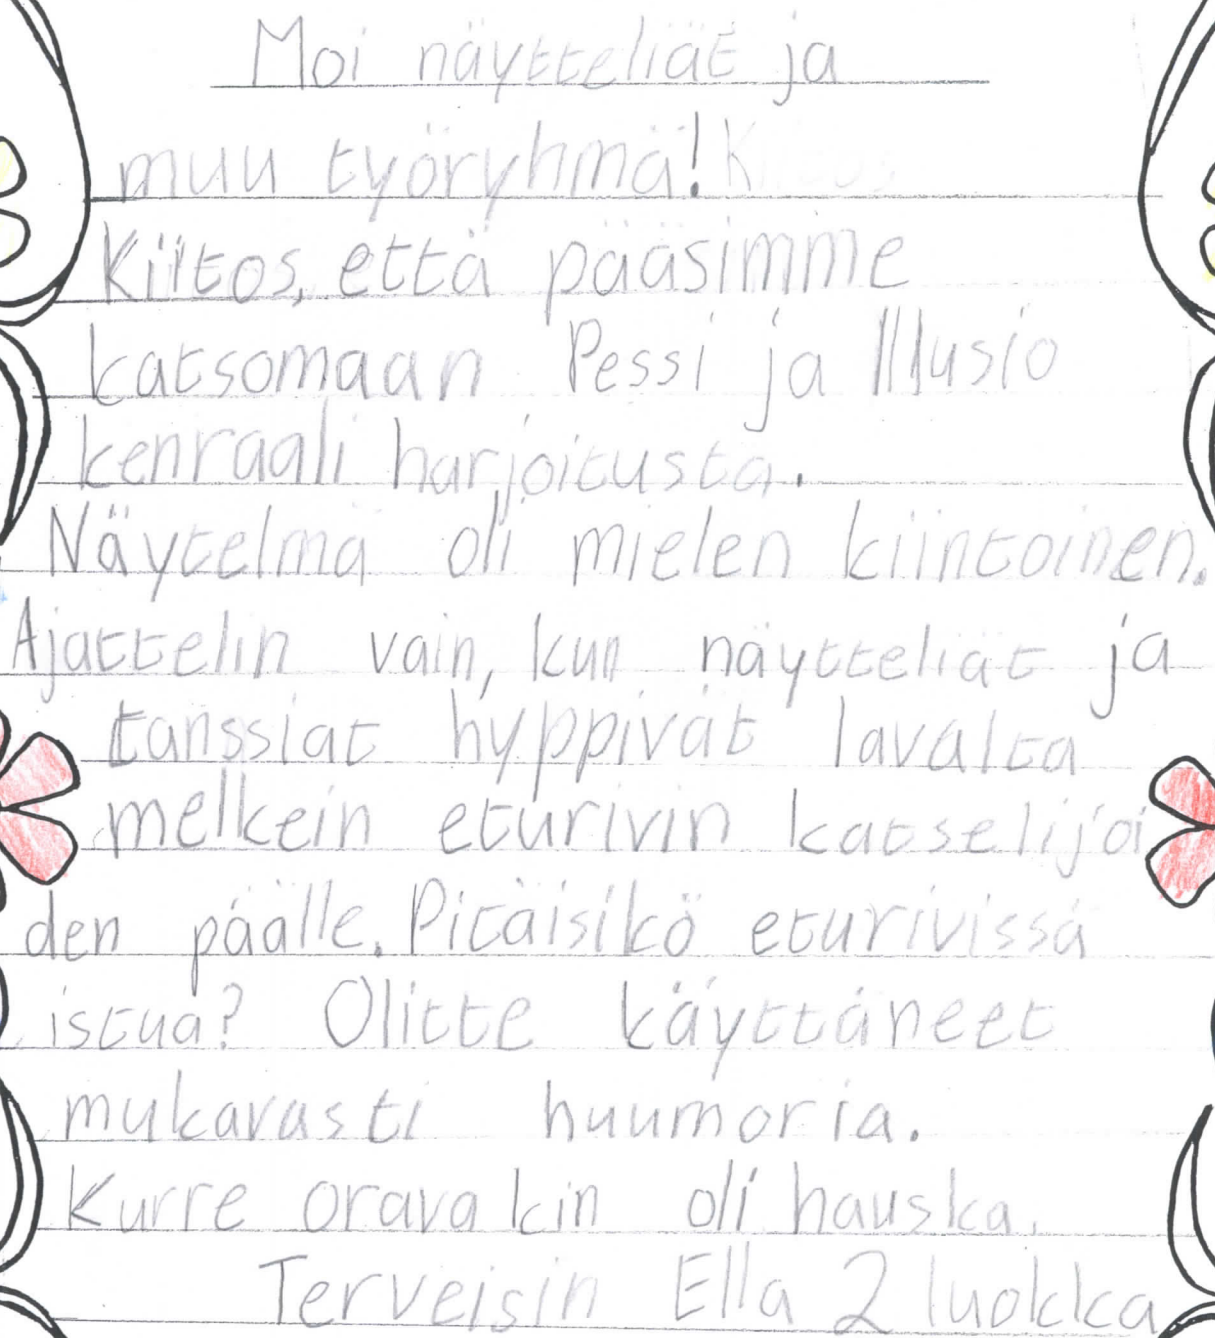 Moi näytteliät ja
muu työryhmä! Kiitos
Kiitos, että pääsimme
katsomaan Pessi ja Illusio
kenraali harjoitusta.
Näytelmä oli mielen kiintoinen.
Ajattelin vain, kun näytteliät ja
tanssiat hyppivät lavalta
melkein eturivin katselijoi
den päälle. Pitäisikö eturivissä
istua? Olitte käyttäneet
mukavasti huumoria.
Kurre orava kin oli hauska.
Terveisin Ella 2 luokka